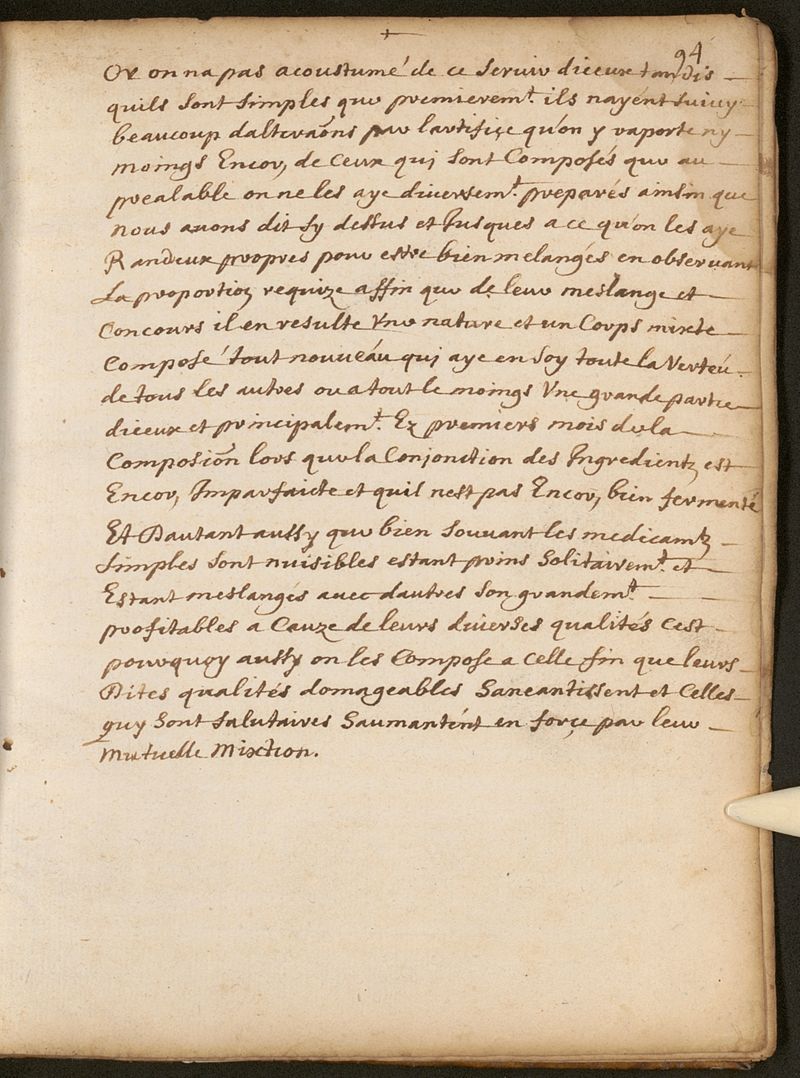 94
Or on na pas acoustumé de ce seruir diceux tandis
quils sont simples que premierem.t ils nayent suiuy
beaucoup dalteraõns par lartifiçe qu'on y raporte ny
moings Encor, de ceux qui sont Composés que au
prealable on ne les aye diuersem.t preparés ainsin que
nous auons dit sy dessus et Jusques a ce qu'on les aye
Randeux propres pour estre bien melangés en obseruant
La proportion requize affin que de leur meslange et
Concours il en resulte Vne nature et un Corps mixte
Composé tout nouueáu qui aye en soy toute la Verteu
de tous les autres ou a tout le moings Vne grande partie
diceux et principalem.t Ez premiers mois de la
Composiõn lors que la Conjonction des Ingredientz est
Encor, Imparfaicte et quil nest pas Encor, bien fermenté
Et Dautant aussy que bien souuant les medicamtz
simples sont nuisibles estant prins Solitairem.t et
Estant meslangés auec dautres son grandem.t
profitables a Cauze de leurs diuerses qualités C'est
pourquoy aussy on les Compose a celle fin que leurs
Dites qualités domageables Saneantissent et Celles
quy sont salutaires Saumantént en forçe par leur
Mutuelle Mixtion.